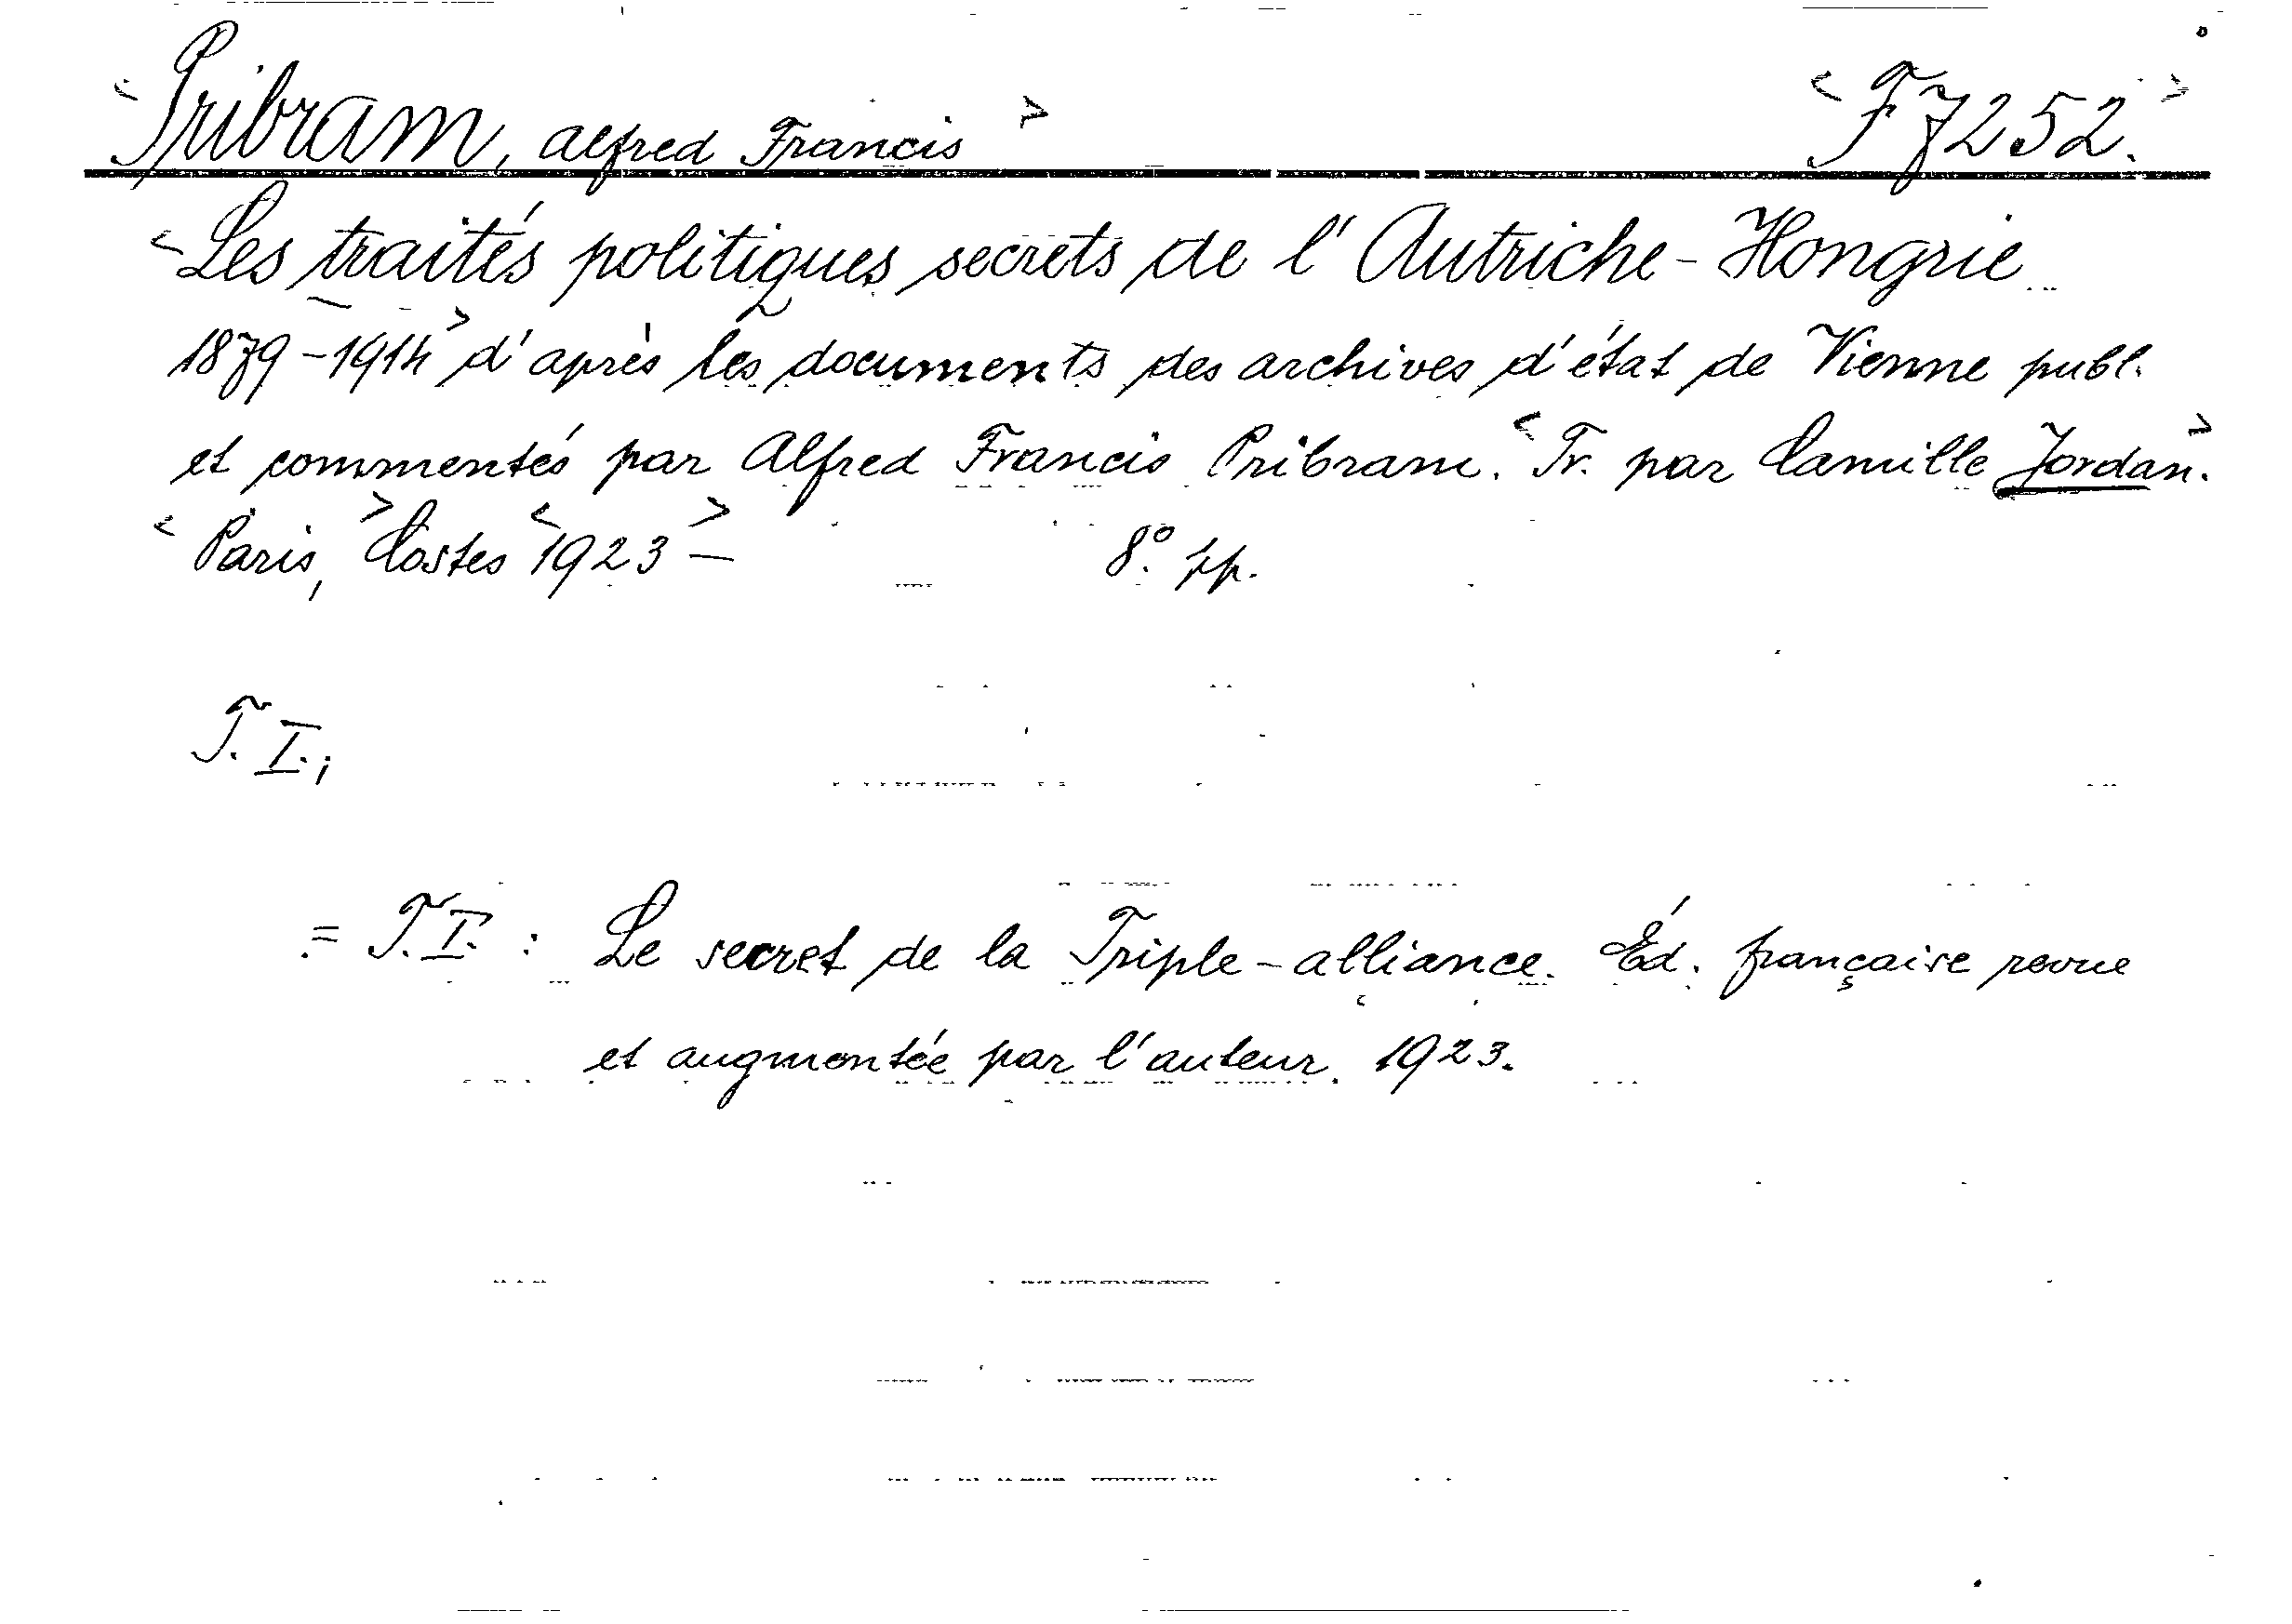 <Pribram, Alfred Francis> <F 7252.>
<Les traités politiques secrets de l'Autriche-Hongrie
1879-1914> d'après les documents des archives d'état de Vienne publ.
et commentés par Alfred Francis Pribram. <Tr. par Camille Jordan.>
<Paris,> Costes <1923> — 8° pp.
T. I.,
= T. I. : Le secret de la Triple-alliance. Éd. française revue
et augmentée par l'auteur. 1923.